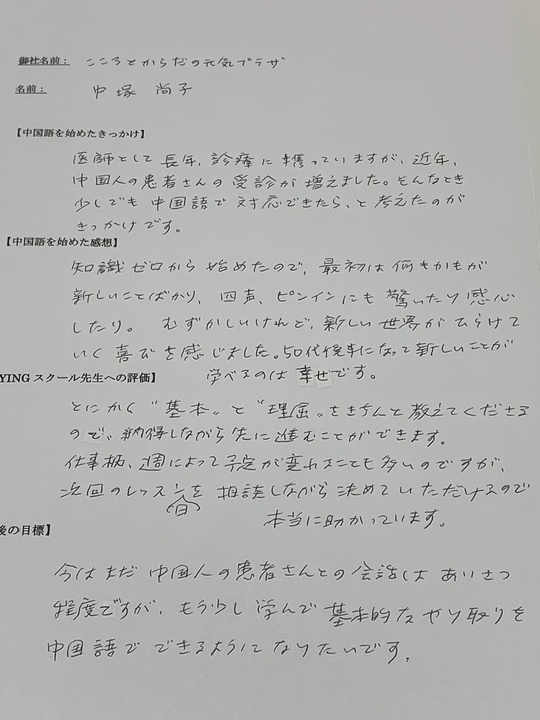 御社名前： こころとからだの元気プラザ
名前： 中塚 尚子
【中国語を始めたきっかけ】
医師として長年、診療に携っていますが、近年、
中国人の患者さんの受診が増えました。そんなとき
少しでも中国語で対応できたら、と考えたのが
きっかけです。
【中国語を始めた感想】
知識ゼロから始めたので、最初は何もかもが
新しいことばかり、四声、ピンインにも驚いたり感心
したり。むずかしいけれど、新しい世界がひらけて
いく喜びを感じました。50代後半になって新しいことが
学べるのは幸せです。
YINGスクール先生への評価】
とにかく"基本"と"理屈"をきちんと教えてくださる
ので、納得しながら先に進むことができます。
仕事柄、週によって予定が変わることも多いのですが、
次回のレッスン日を相談しながら決めていただけるので
本当に助かっています。
後の目標】
今はまだ中国人の患者さんとの会話はあいさつ
程度ですが、もう少し学んで基本的なやり取りを
中国語でできるようになりたいです。